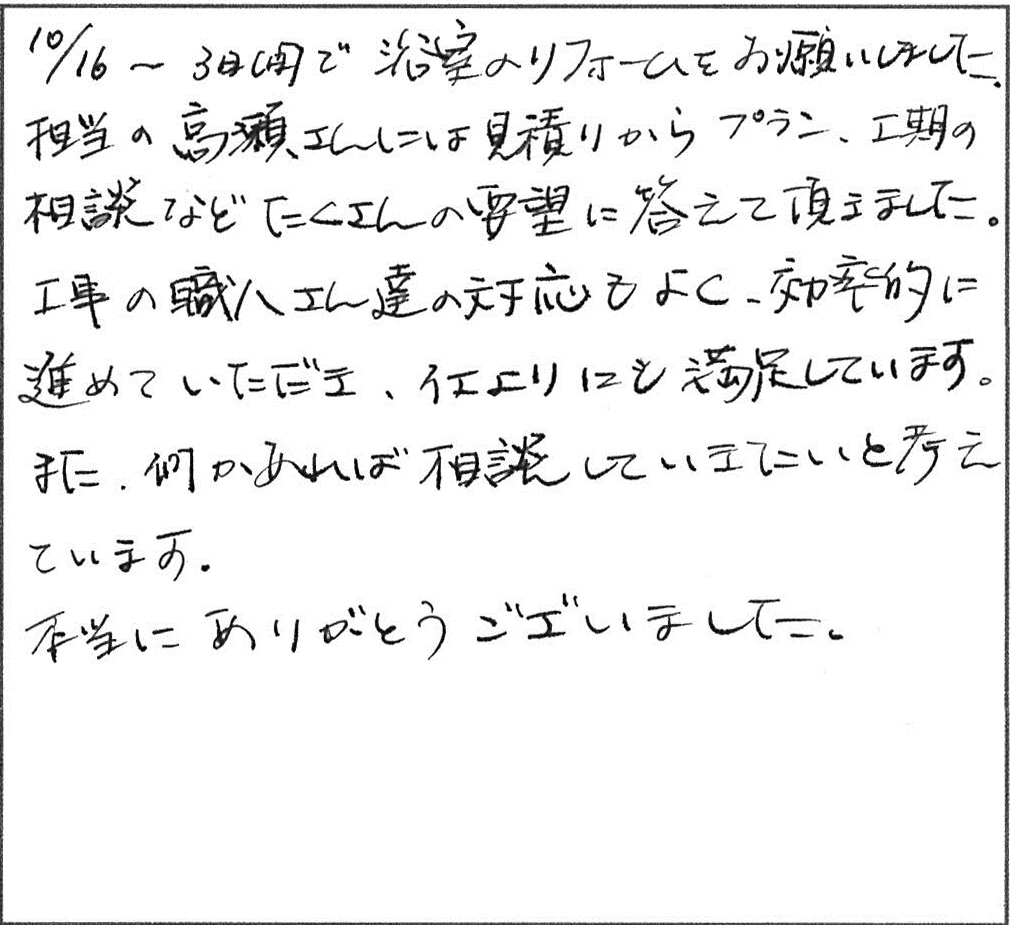 10/16～3日間で浴室のリフォームをお願いしました。
担当の高瀬さんには見積りからプラン、工期の
相談などたくさんの要望に答えて頂きました。
工事の職人さん達の対応もよく、効率的に
進めていただき、仕上りにも満足しています。
また、何かあれば相談していきたいと考え
ています。
本当にありがとうございました。